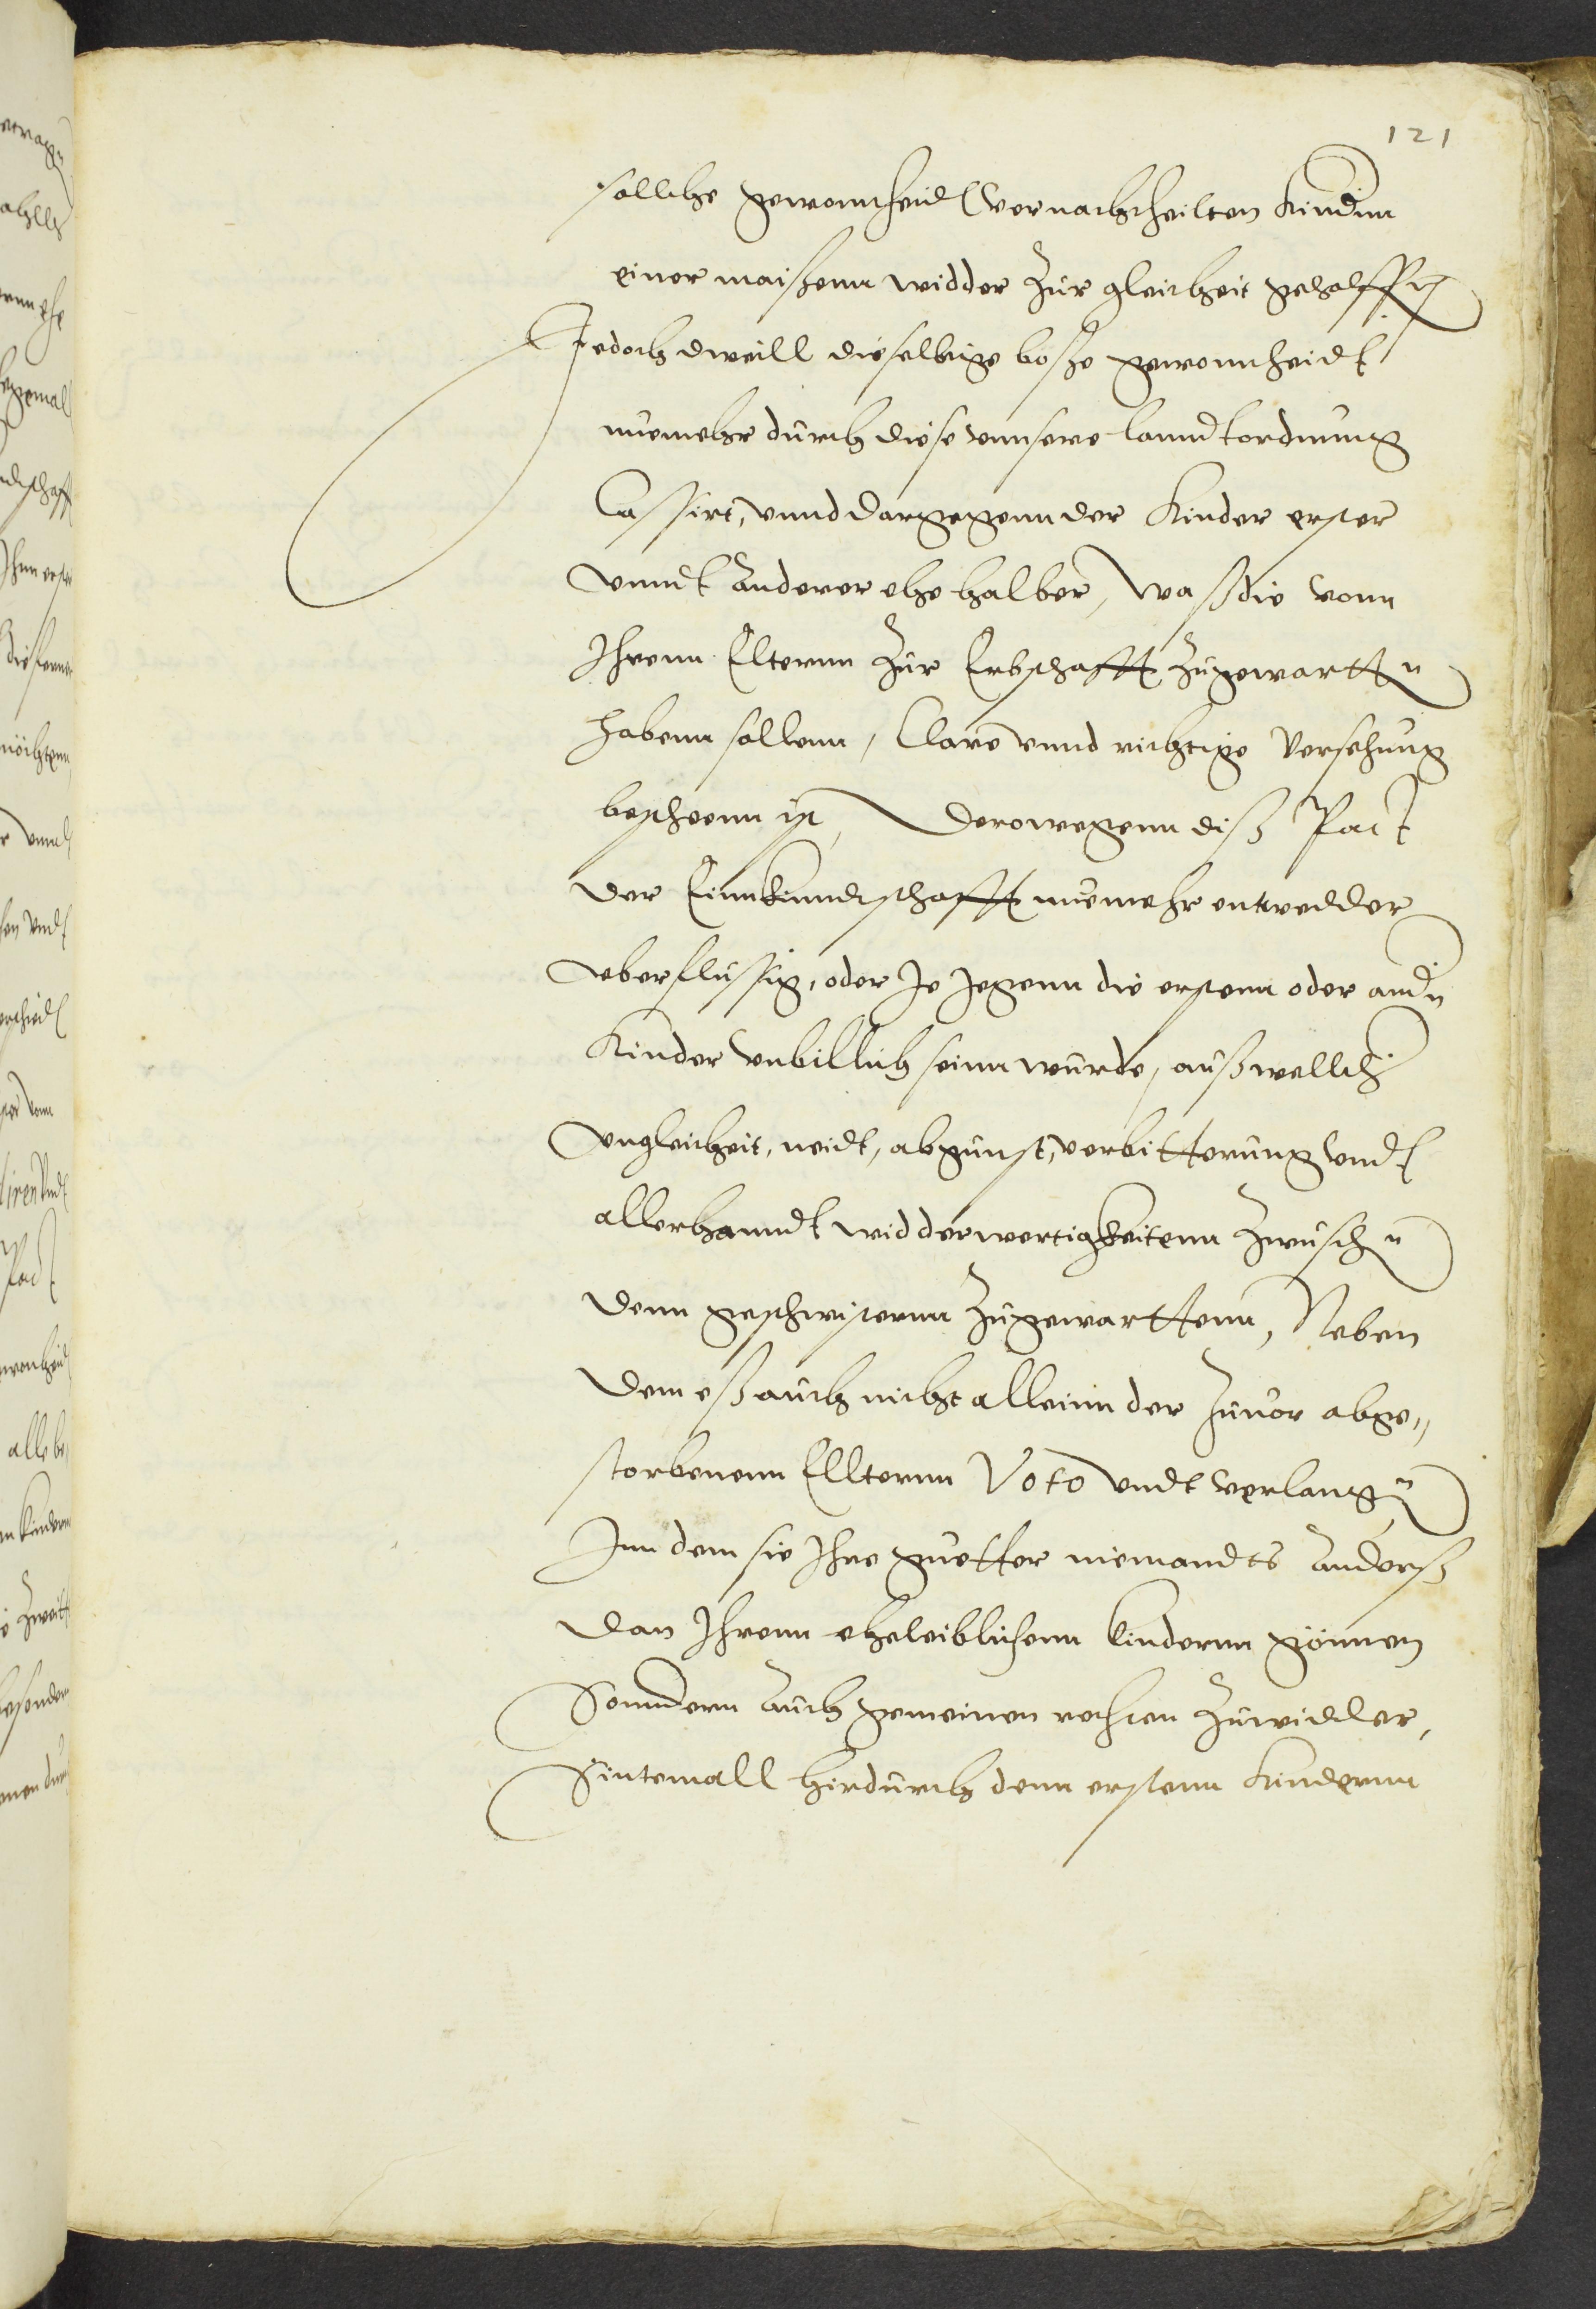 121
sollche gewonheid vernachtheilten Kindern
einer maißenn widder zur gleicheit geholffen
Jedoch dweill dieselbige böße gewonnheidt
nuemehr durch diese vnnsere lanndtordnung
Cassirt, vnnd dargegenn der Kinder erster
vnndt anderer ehe halber, waß die vonn
Ihrenn Elternn zur Erbschafft zugewartten
habenn sollenn, Clare vnnd richtige versehung
bescheenn ist, Derowegenn diß Pact
der Einnkinndschafft nuemehr entwedder
vberflüssig, oder Je Jegenn die erstenn oder andern
Kinder vnbillich seinn würde, außwellcher
vngleicheit, neidt, abgunst, verbitterung vndt
allerhanndt widderwertigkeitenn zwuschen
denn geschwisternn zugewarttenn, Neben
dem eß auch nicht alleinn der zuuor abge„
storbenenn Ellternn Voto vndt verlangen
Inn dem sie Ihre guetter niemandts anderß
dan Ihrenn eheleiblichenn kindernn gönnen
Sonndern auch gemeinen rechten zuwidder,
Sintemall hirdurch denn erstenn Kindernn